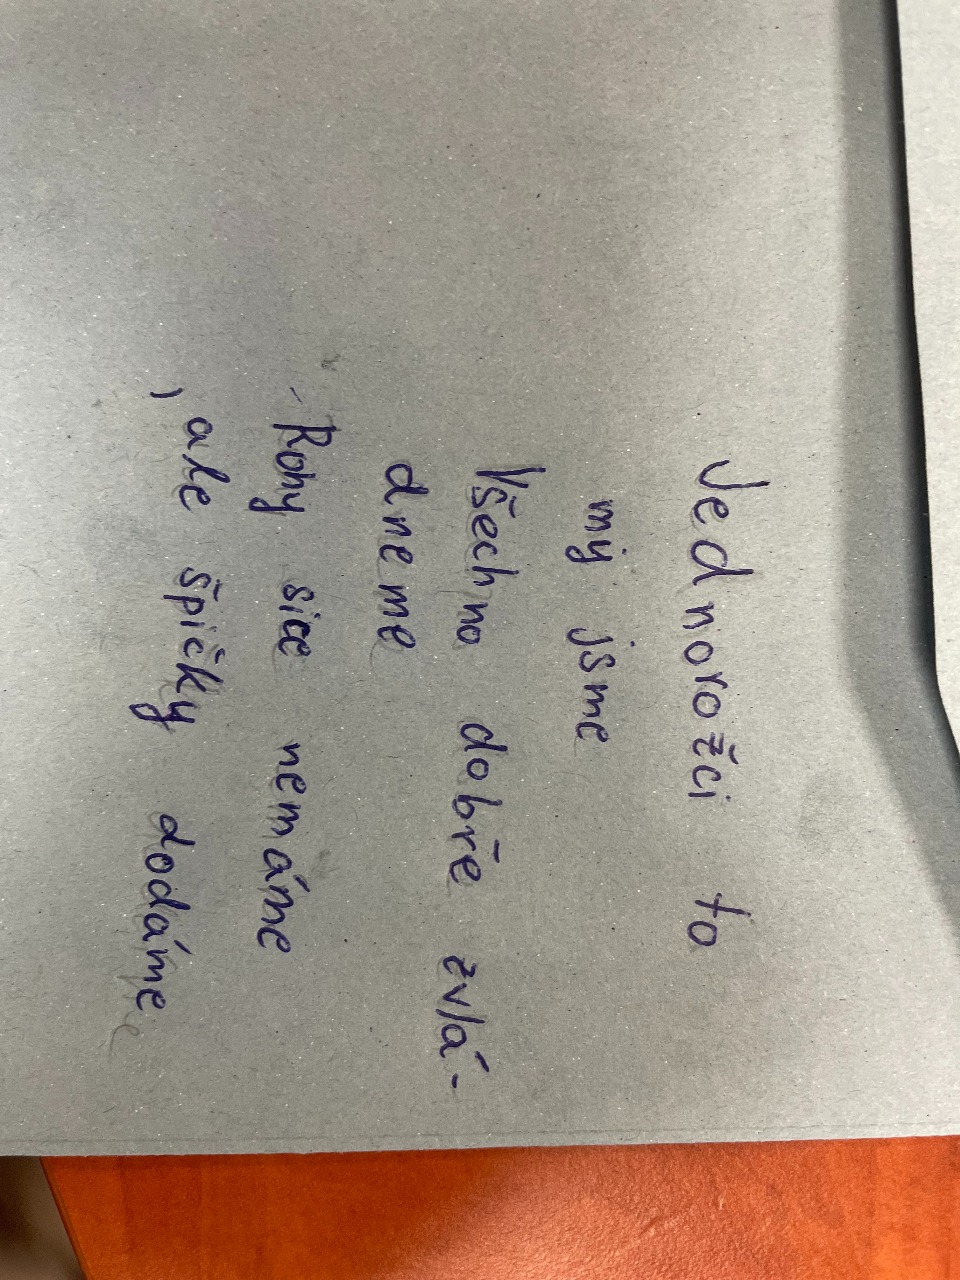 Jednorožci to
my jsme
Všechno dobře zvlá-
dneme
-Rohy sice nemáme
, ale špičky dodáme